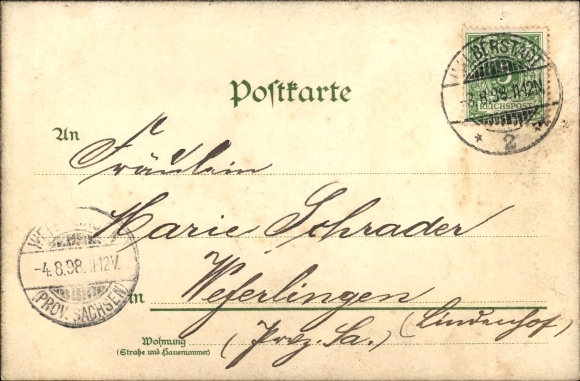 HALBERSTADT
5
-3.8.98.11-12V.
REICHSPOST
* 2 *
Postkarte
An
Fräulein
Marie Schrader
WEFERLINGEN
-4.8.98.11-12V.
(PROV. SACHSEN)
in Weferlingen
(Prvz. Sa.) (Lindenhof)
Wohnung
(Straße und Hausnummer)